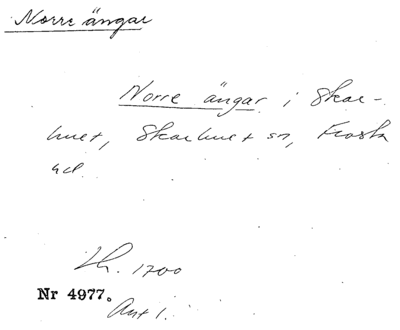 Norre ängar
Norre ängar i Skar-
hult, Skarhult sn, Frosta
hd
Lh. 1700
Nr 4977.
Avt 1.